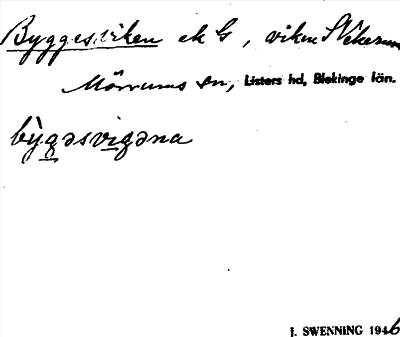 Byggesviken ek G, viken St Vekerum
Mörrums sn, Listers hd, Blekinge län.
bỳgəsvigəna
J. SWENNING 1946